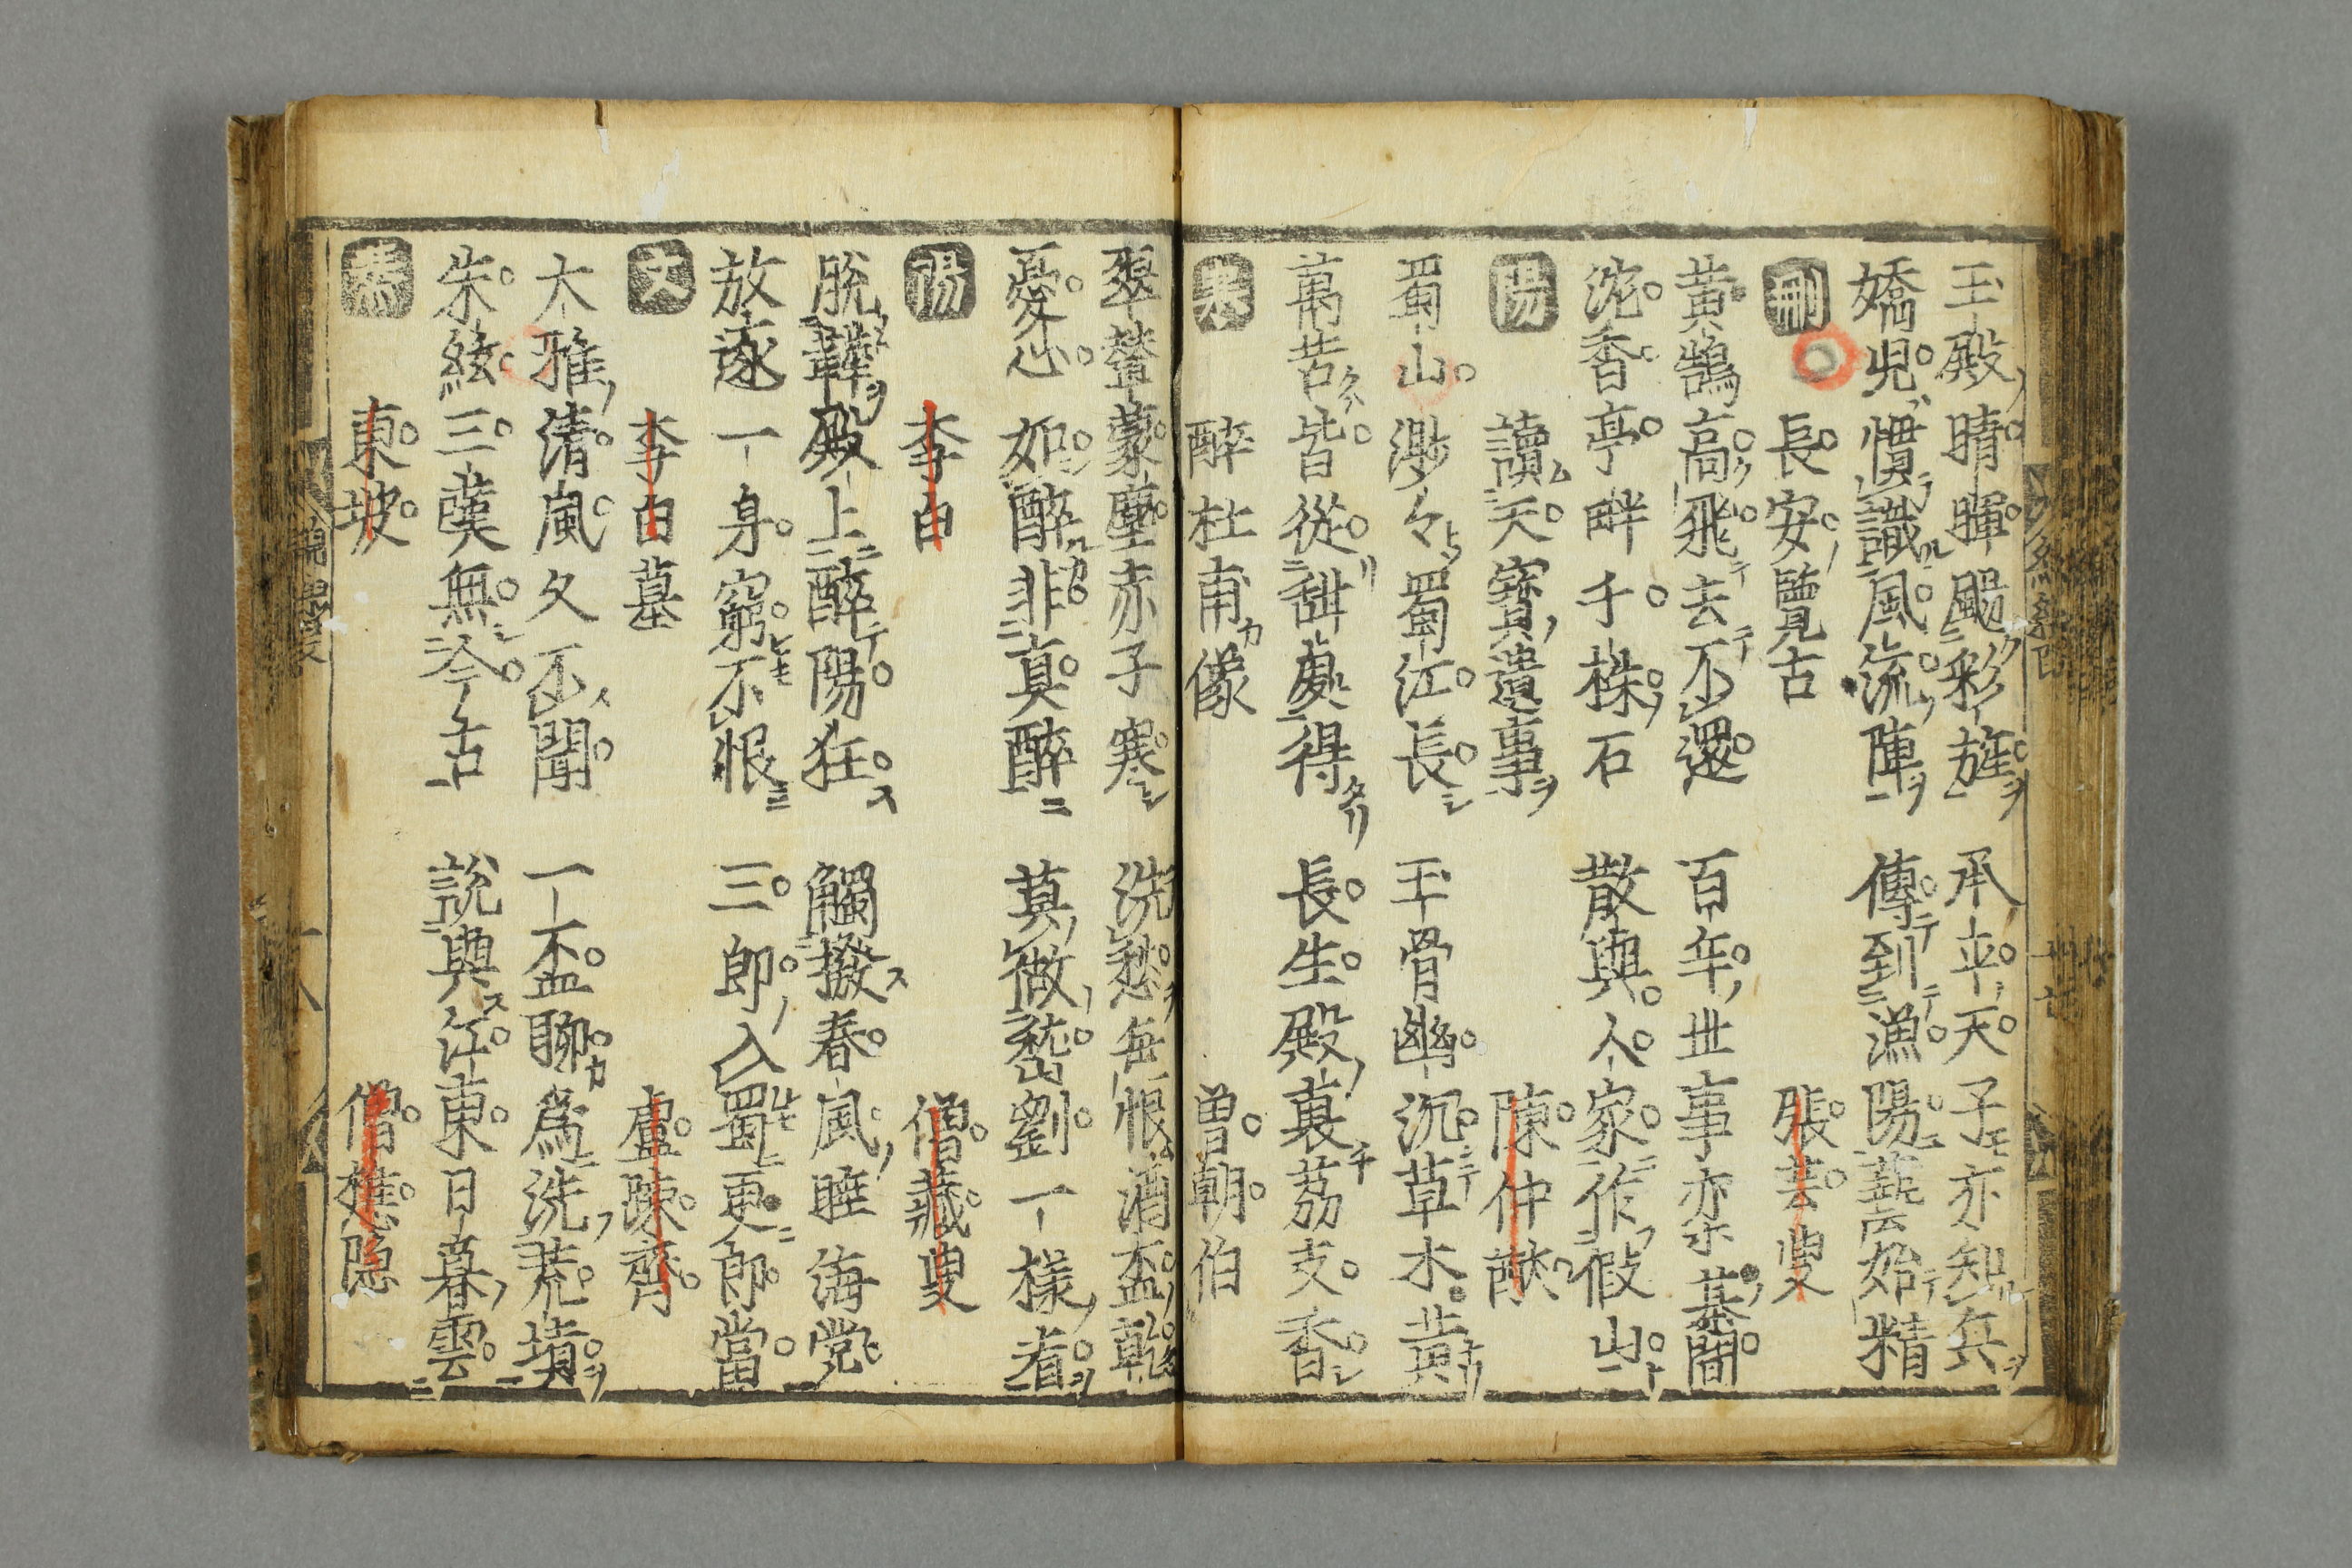 玉殿晴暉颺彩旌 承平天子亦知兵
嬌児慣識風流陣 傳到漁陽藝始精
刪 長安覽古 張芸叟
黃鵠高飛去不還 百年世事亦棊間
沈香亭畔千株石 散與人家作假山
陽 讀天寶遺事 陳仲猷
蜀山渺々蜀江長 玉骨幽沉草木黃
萬苦皆從甜處得 長生殿裏荔支香
寒 醉杜甫像 曽朝伯
翠輦蒙塵赤子寒 洗愁每恨酒盃乾
憂心如醉非真醉 莫做嵆劉一様看
陽 李白 僧藏叟
脫鞾殿上醉陽狂 觸撥春風睡海棠
放逐一身窮不恨 三郎入蜀更郎當
文 李白墓 盧踈齊
大雅清風久不聞 一盃聊爲洗荒墳
朱絃三葉無今古 說與江東日暮雲
東坡 僧樵隠